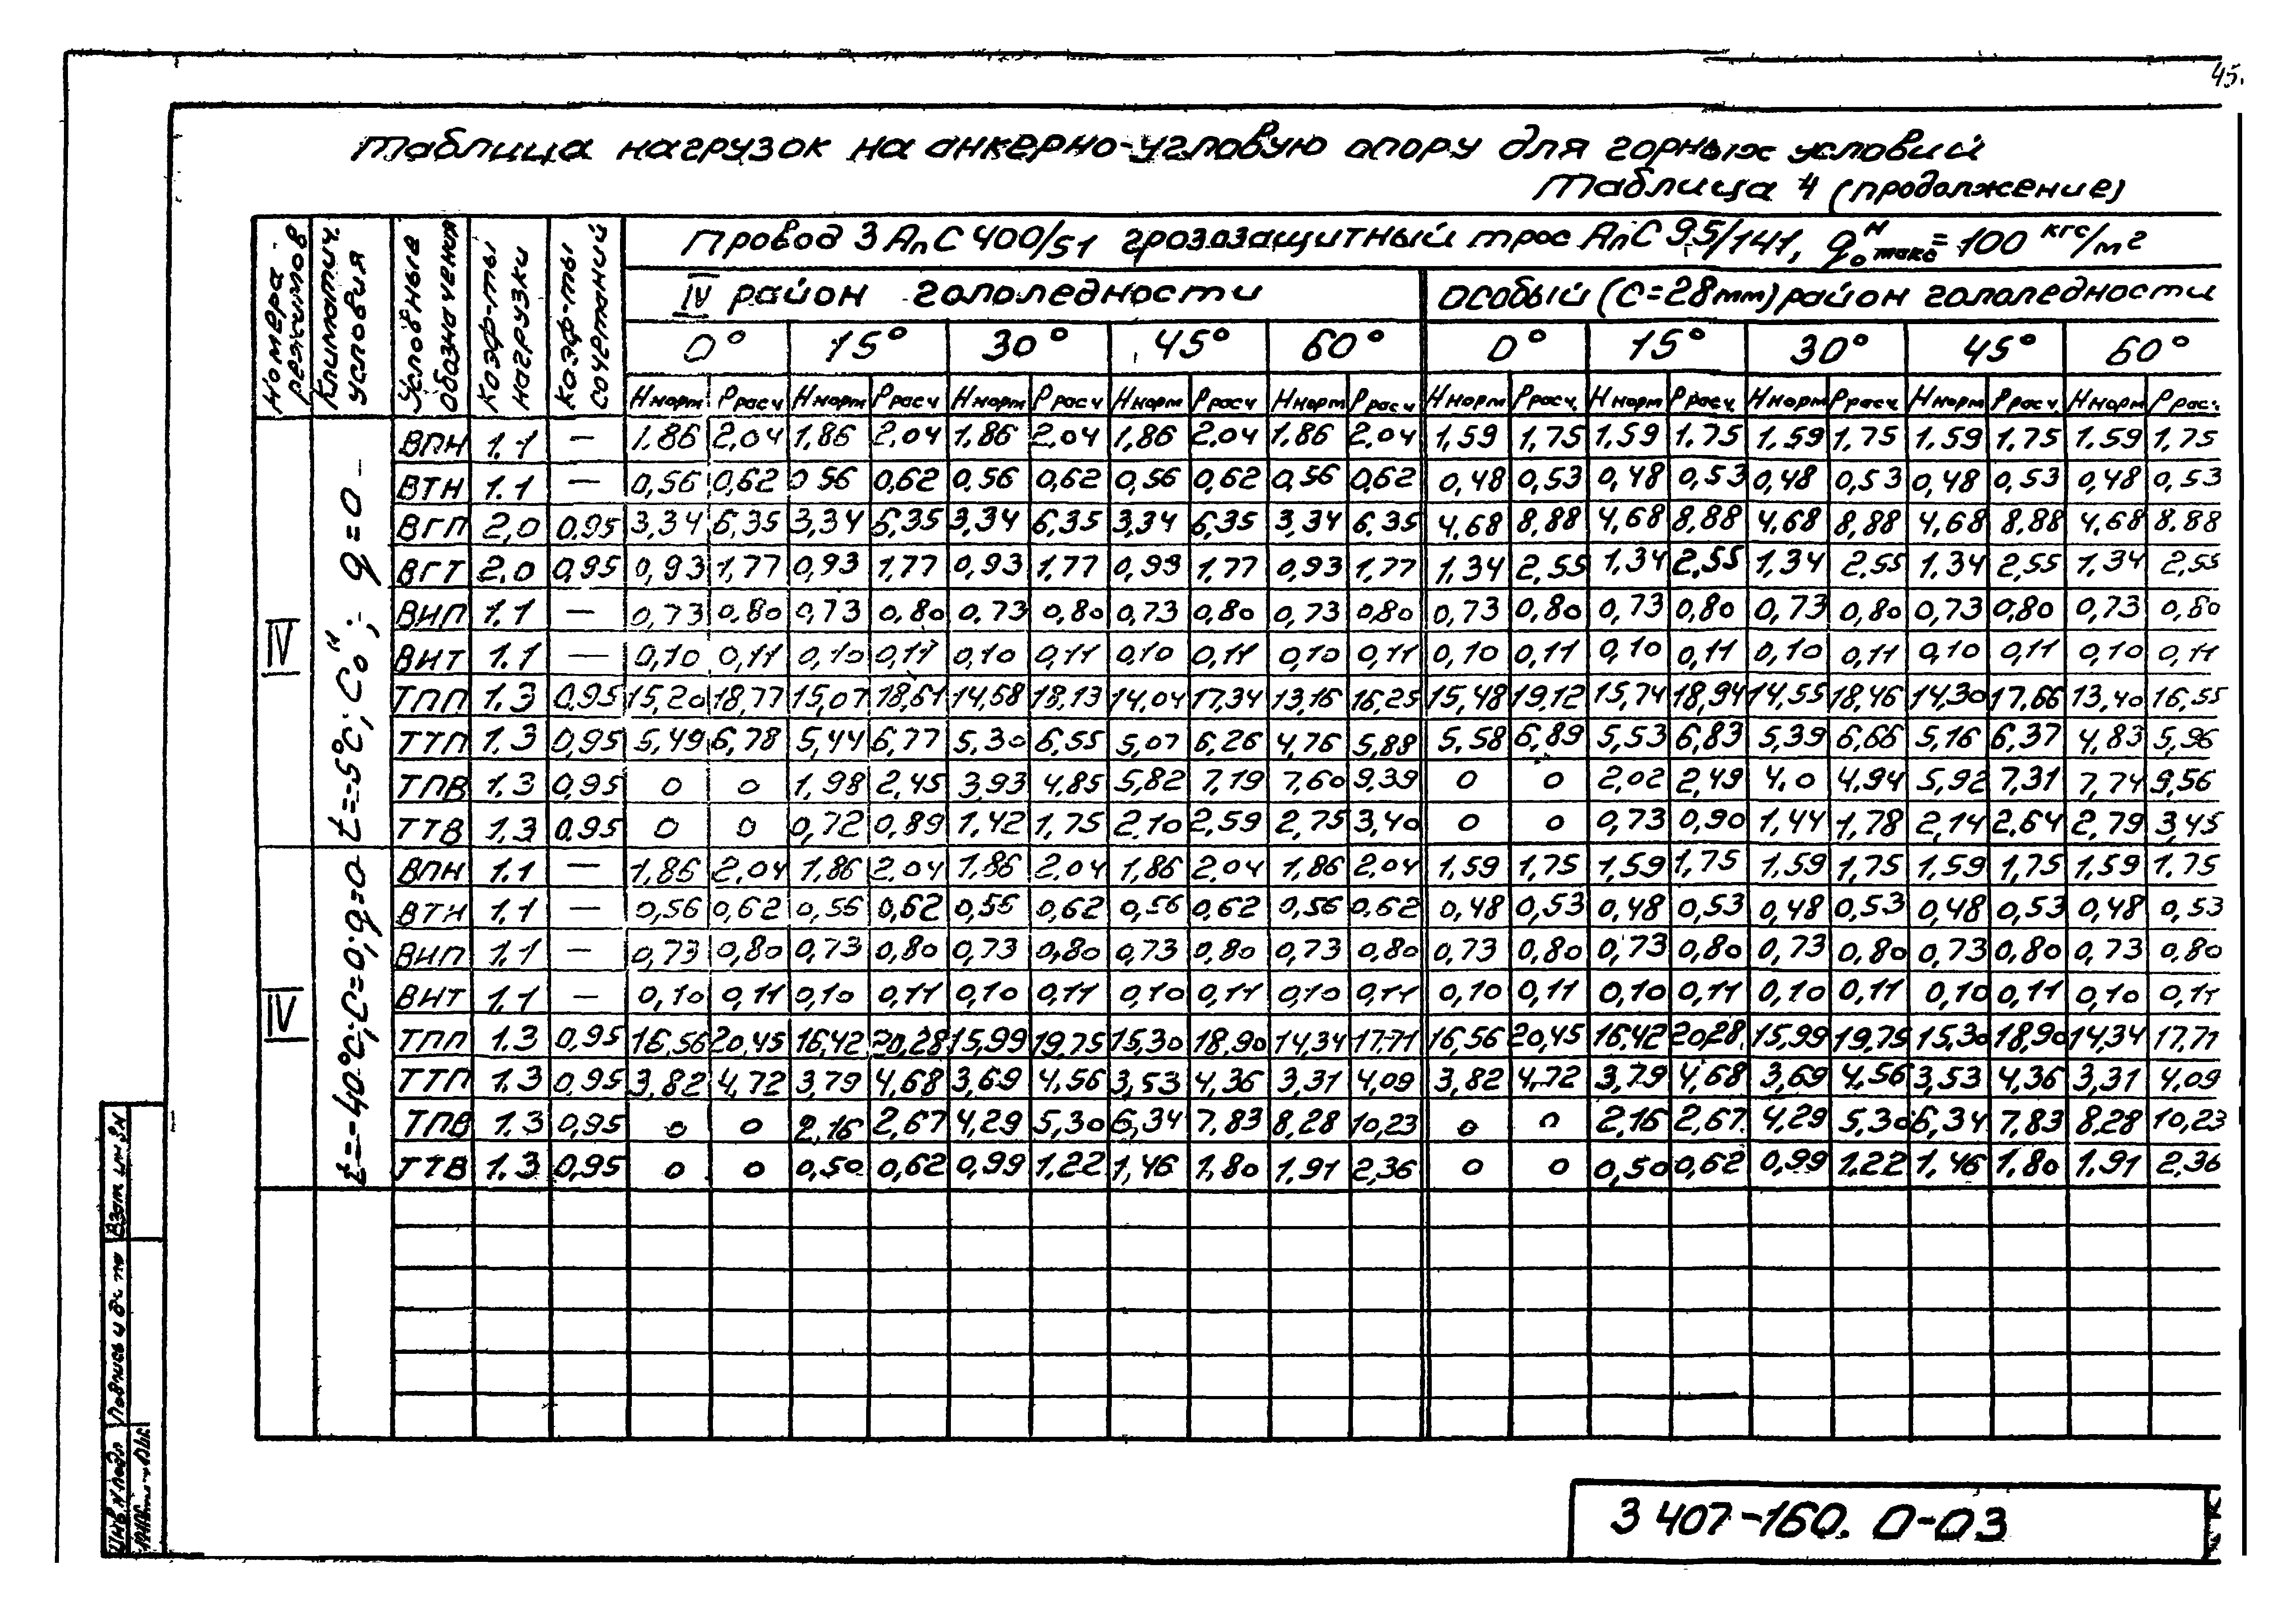 45.
Таблица нагрузок на анкерно-угловую опору для горных условий
Таблица 4 (продолжение)
Номера режимов | Климатич. условия | Условные обозначения | Коэф-ты нагрузки | Коэф-ты сочетаний | Провод 3 АпС 400/51 грозозащитный трос АпС 95/141, qᴴ₀ макс = 100 кгс/м²
IV район гололедности | Особый (С=28мм) район гололедности
0° | 15° | 30° | 45° | 60° | 0° | 15° | 30° | 45° | 60°
Ннорм | Ррасч | Ннорм | Ррасч | Ннорм | Ррасч | Ннорм | Ррасч | Ннорм | Ррасч | Ннорм | Ррасч. | Ннорм | Ррасч. | Ннорм | Ррасч. | Ннорм | Ррасч. | Ннорм | Ррасч.
IV | t=-5°С; С₀ᴴ; q=0
ВПН | 1.1 | — | 1,86 | 2,04 | 1,86 | 2,04 | 1,86 | 2,04 | 1,86 | 2,04 | 1,86 | 2,04 | 1,59 | 1,75 | 1,59 | 1,75 | 1,59 | 1,75 | 1,59 | 1,75 | 1,59 | 1,75
ВТН | 1.1 | — | 0,56 | 0,62 | 0 56 | 0,62 | 0,56 | 0,62 | 0,56 | 0,62 | 0,56 | 0,62 | 0,48 | 0,53 | 0,48 | 0,53 | 0,48 | 0,53 | 0,48 | 0,53 | 0,48 | 0,53
ВГП | 2,0 | 0,95 | 3,34 | 6,35 | 3,34 | 6,35 | 3,34 | 6,35 | 3,34 | 6,35 | 3,34 | 6,35 | 4,68 | 8,88 | 4,68 | 8,88 | 4,68 | 8,88 | 4,68 | 8,88 | 4,68 | 8.88
ВГТ | 2.0 | 0,95 | 0,93 | 1,77 | 0,93 | 1,77 | 0,93 | 1,77 | 0,93 | 1,77 | 0,93 | 1,77 | 1,34 | 2,55 | 1,34 | 2,55 | 1,34 | 2,55 | 1,34 | 2,55 | 1,34 | 2,55
ВИП | 1.1 | — | 0,73 | 0,80 | 0,73 | 0,80 | 0,73 | 0,80 | 0,73 | 0,80 | 0,73 | 0,80 | 0,73 | 0,80 | 0,73 | 0,80 | 0,73 | 0,80 | 0,73 | 0,80 | 0,73 | 0,80
ВИТ | 1.1 | — | 0,10 | 0,11 | 0,10 | 0,11 | 0,10 | 0,11 | 0,10 | 0,11 | 0,10 | 0,11 | 0,10 | 0,11 | 0,10 | 0,11 | 0,10 | 0,11 | 0,10 | 0,11 | 0,10 | 0,11
ТПП | 1.3 | 0,95 | 15,20 | 18,77 | 15,07 | 18,61 | 14,68 | 18,13 | 14,04 | 17,34 | 13,16 | 16,25 | 15,48 | 19,12 | 15,74 | 18,94 | 14,55 | 18,46 | 14,30 | 17,66 | 13,40 | 16,55
ТТП | 1.3 | 0,95 | 5,49 | 6,78 | 5,44 | 6,77 | 5,30 | 6,55 | 5,07 | 6,26 | 4,76 | 5,88 | 5,58 | 6,89 | 5,53 | 6,83 | 5,39 | 6,66 | 5,16 | 6,37 | 4,83 | 5,96
ТПВ | 1.3 | 0,95 | 0 | 0 | 1,98 | 2,45 | 3,93 | 4,85 | 5,82 | 7,19 | 7,60 | 9,39 | 0 | 0 | 2,02 | 2,49 | 4,0 | 4,94 | 5,92 | 7,31 | 7,74 | 9,56
ТТВ | 1.3 | 0,95 | 0 | 0 | 0,72 | 0,89 | 1,42 | 1,75 | 2,10 | 2,59 | 2,75 | 3,40 | 0 | 0 | 0,73 | 0,90 | 1,44 | 1,78 | 2,14 | 2,64 | 2,79 | 3,45
IV | t=-40°С; С=0; q=0
ВПН | 1.1 | — | 1,86 | 2,04 | 1,86 | 2,04 | 1,86 | 2,04 | 1,86 | 2,04 | 1,86 | 2,04 | 1,59 | 1,75 | 1,59 | 1,75 | 1,59 | 1,75 | 1,59 | 1,75 | 1,59 | 1.75
ВТН | 1.1 | — | 0,56 | 0,62 | 0,56 | 0,62 | 0,56 | 0,62 | 0,56 | 0,62 | 0,56 | 0,62 | 0,48 | 0,53 | 0,48 | 0,53 | 0,48 | 0,53 | 0,48 | 0,53 | 0,48 | 0,53
ВИП | 1.1 | — | 0,73 | 0,80 | 0,73 | 0,80 | 0,73 | 0,80 | 0,73 | 0,80 | 0,73 | 0,80 | 0,73 | 0,80 | 0,73 | 0,80 | 0,73 | 0,80 | 0,73 | 0,80 | 0,73 | 0,80
ВИТ | 1.1 | — | 0,10 | 0,11 | 0,10 | 0,11 | 0,10 | 0,11 | 0,10 | 0,11 | 0,10 | 0,11 | 0,10 | 0,11 | 0,10 | 0,11 | 0,10 | 0,11 | 0,10 | 0,11 | 0,10 | 0,11
ТПП | 1.3 | 0,95 | 16,56 | 20,45 | 16,42 | 20,28 | 15,99 | 19,75 | 15,30 | 18,90 | 14,34 | 17.71 | 16,56 | 20,45 | 16,42 | 20,28 | 15,99 | 19,75 | 15,30 | 18,90 | 14,34 | 17,71
ТТП | 1.3 | 0,95 | 3,82 | 4,72 | 3,79 | 4,68 | 3,69 | 4,56 | 3,53 | 4,36 | 3,31 | 4,09 | 3,82 | 4,72 | 3,79 | 4,68 | 3,69 | 4,56 | 3,53 | 4,36 | 3,31 | 4,09
ТПВ | 1.3 | 0,95 | 0 | 0 | 2,16 | 2,67 | 4,29 | 5,30 | 6,34 | 7,83 | 8,28 | 10,23 | 0 | 0 | 2,16 | 2,67 | 4,29 | 5,30 | 6,34 | 7,83 | 8,28 | 10,23
ТТВ | 1.3 | 0,95 | 0 | 0 | 0,50 | 0,62 | 0,99 | 1,22 | 1,46 | 1,80 | 1,91 | 2,36 | 0 | 0 | 0,50 | 0,62 | 0,99 | 1,22 | 1,46 | 1,80 | 1,91 | 2,36
Взам инв N
Подпись и
Инв. N подл
3 407-160. 0-03